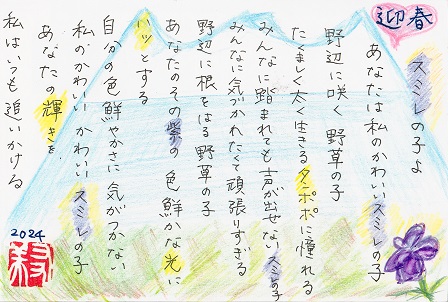 迎春
スミレの子よ
あなたは私のかわいいスミレの子
野辺に咲く 野草の子
たくましく太く生きるタンポポに憧れる
みんなに踏まれても声が出せないスミレの子
みんなに気づかれたくて頑張りすぎる
野辺に根をはる野草の子
あなたのその紫の 色鮮かな光に
ハッとする
自分の色鮮やかさに気がつかない
私のかわいい かわいい スミレの子
あなたの輝きを、
私はいつも追いかける
2024